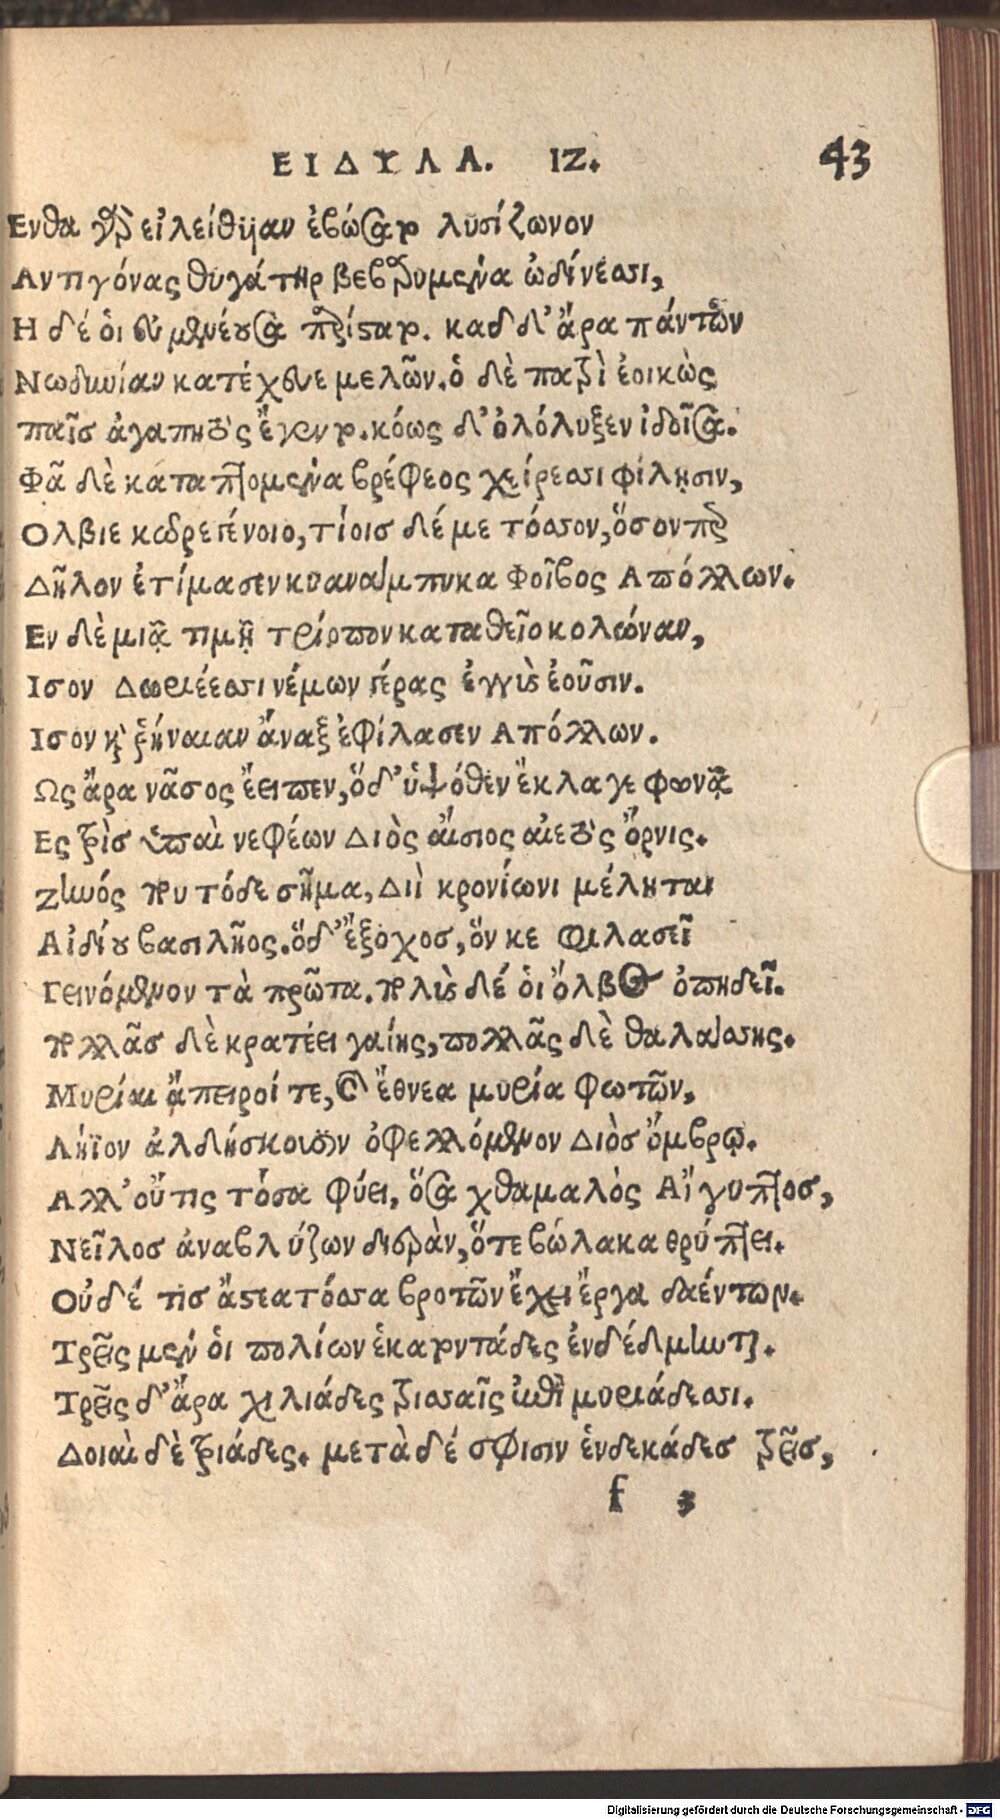 ΕΙΔΥΛΛ. ΙΖ. 43
Ενθα γὰρ εἰλείθῃαν ἐβώσατο λυσίζωνον
Αντιγόνας θυγάτηρ βεβαρυμένα ὠδίνεσσι,
Η δέ οἱ εὐμενέουσα παρίστατο. καδ δ' ἄρα πάντων
Νωδυνίαν κατέχευε μελῶν. ὁ δὲ πατρὶ ἐοικὼς
παῖσ ἀγαπητὸς ἔγεντο. κόως δ' ὀλόλυξεν ἰδοῖσα.
Φᾶ δὲ καταπτομένα βρέφεος χείρεσσι φίλῃσιν,
Ολβιε κῶδρε γένοιο, τίοισ δέ με τόσσον, ὅσον περ
Δῆλον ἐτίμασεν κυαναμπυκα Φοῖβος Απόλλων.
Εν δὲ μιᾷ τιμῇ τρίοπον καταθεῖο κολώναν,
Ισον Δωριέεσσι νέμων γέρας ἐγγὺς ἐοῦσιν.
Ισον καὶ ῥήναιαν ἄναξ ἐφίλασεν Απόλλων.
Ως ἄρα νᾶσος ἔειπεν, ὅδ' ὑψόθεν ἔκλαγε φωνᾷ
Ες τρὶσ ὑπαὶ νεφέων Διὸς αἴσιος αἰετὸς ὄρνις.
Ζηνός που τόδε σῆμα, Διὶ κρονίωνι μέληται
Αἰδίου βασιλῆος. ὅδ' ἔξοχοσ, ὅν κε φιλασεῖ
Γεινόμενον τὰ πρῶτα. πολὺς δέ οἱ ὄλβος ὀπηδεῖ.
πολλᾶσ δὲ κρατέει γαίης, πολλᾶς δὲ θαλάσσης.
Μυρίαι ἄπειροί τε, καὶ ἔθνεα μυρία φωτῶν,
Λήϊον ἀλδήσκουσιν ὀφελλόμενον Διὸσ ὄμβρῳ.
Αλλ' οὔτις τόσα φύει, ὅσα χθαμαλὸς Αἴγυπτοσ,
Νεῖλοσ ἀναβλύζων διερὰν, ὅτε βώλακα θρύπτει.
Οὐδέ τισ ἄστεα τόσσα βροτῶν ἔχει ἔργα δαέντων.
Τρεῖς μέν οἱ πολίων ἑκατοντάδες ἐνδέδμηνται.
Τρεῖς δ' ἄρα χιλιάδες τρισσαῖς ἐπὶ μυριάδεσσι.
Δοιαὶ δὲ τριάδες. μετὰ δέ σφισιν ἑνδεκάδεσ τρεῖσ,
f 3
Digitalisierung gefördert durch die Deutsche Forschungsgemeinschaft - DFG